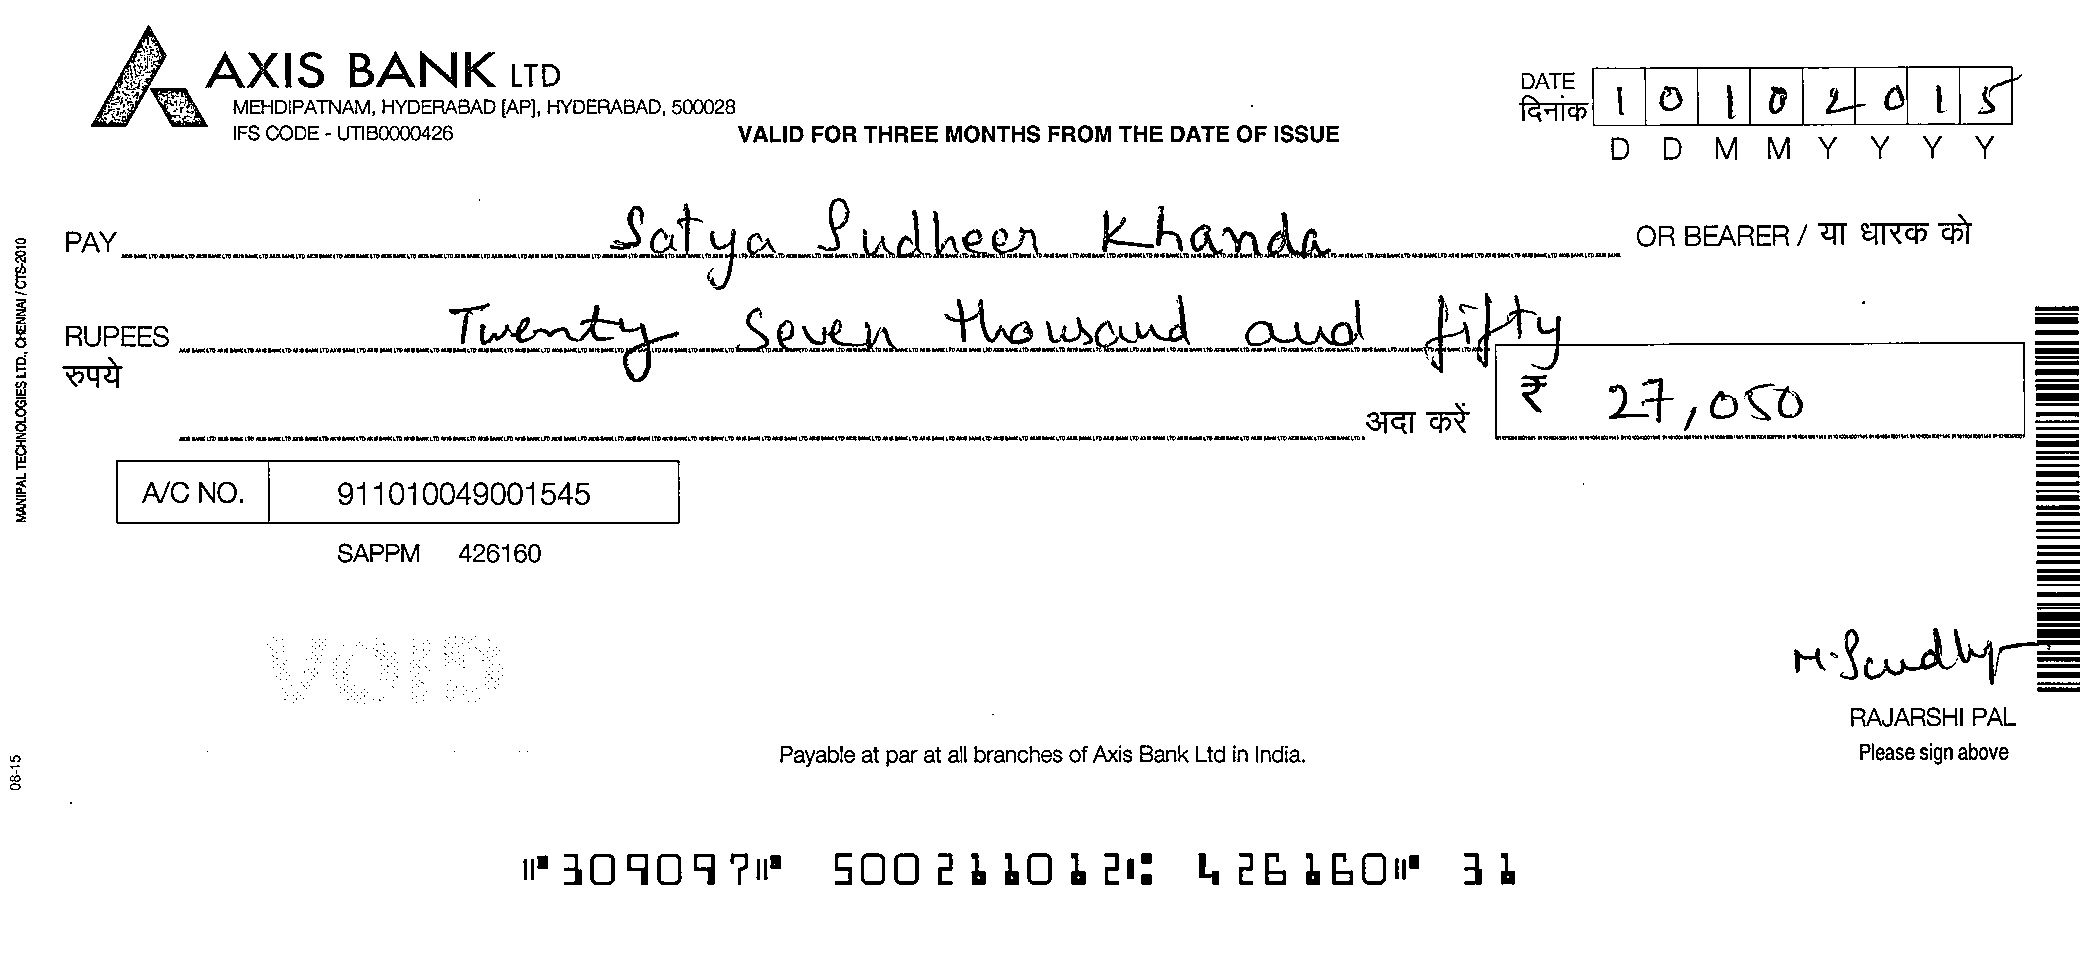 AXIS BANK LTD
MEHDIPATNAM, HYDERABAD [AP], HYDERABAD, 500028
IFS CODE - UTIB0000426
VALID FOR THREE MONTHS FROM THE DATE OF ISSUE
DATE
दिनांक
1 0 1 0 2 0 1 5
D D M M Y Y Y Y
PAY Satya Sudheer Khanda OR BEARER / या धारक को
RUPEES Twenty seven thousand and fifty
रुपये
अदा करें ₹ 27,050
A/C NO. 911010049001545
SAPPM 426160
VOID
M. Sandhya
RAJARSHI PAL
Please sign above
Payable at par at all branches of Axis Bank Ltd in India.
MANIPAL TECHNOLOGIES LTD., CHENNAI / CTS-2010
08-15
⑈309097⑈ 500211012⑆ 426160⑈ 31